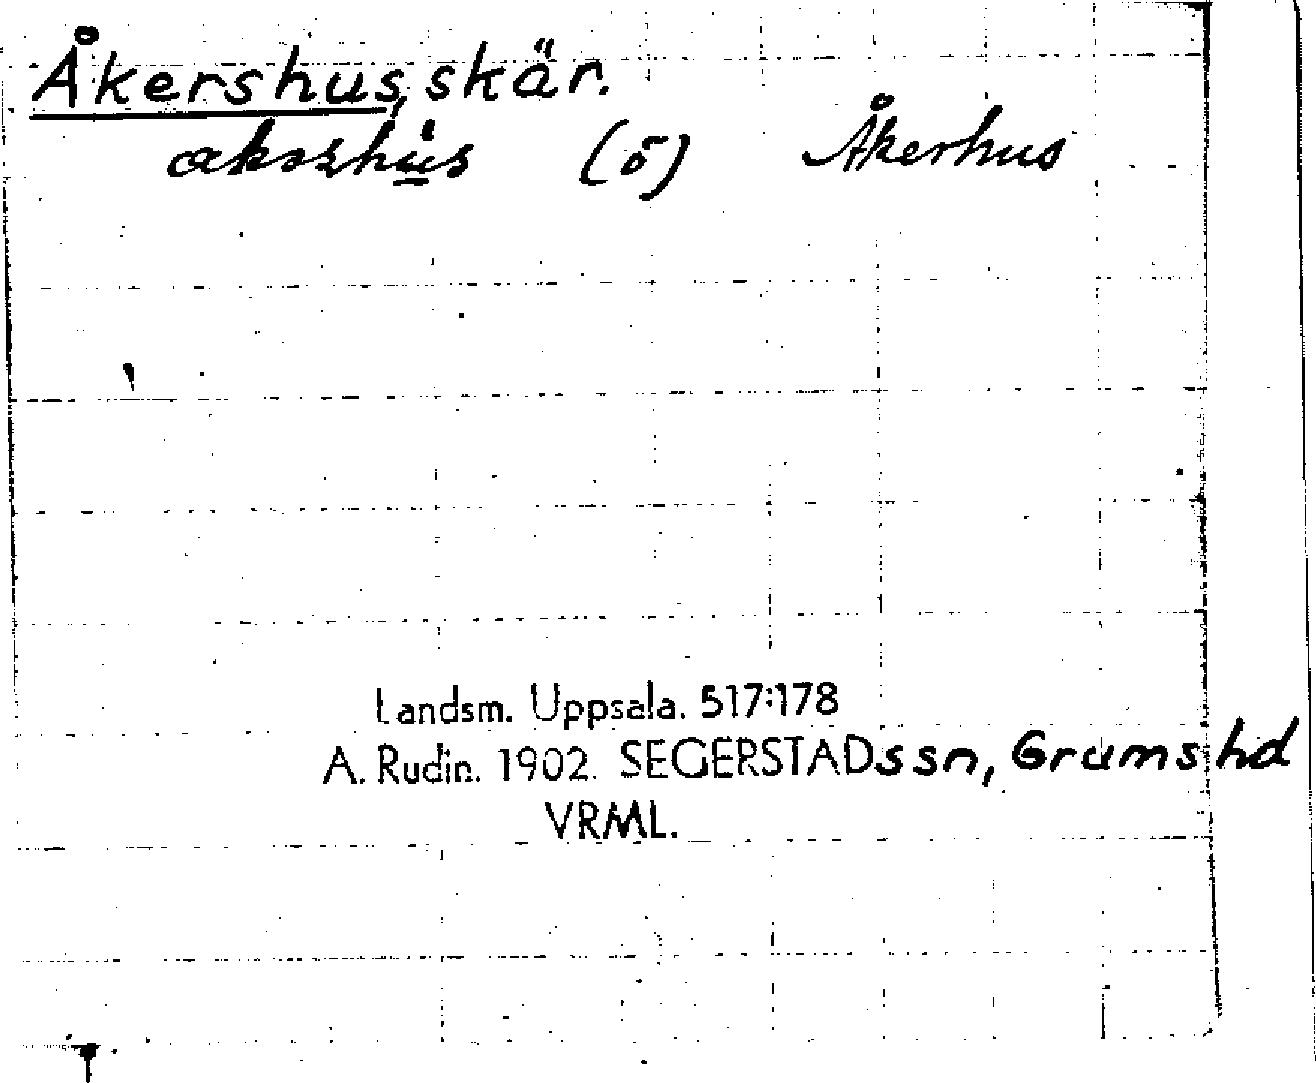 Åkershus, skär.
(ö) Åkerhus
Landsm. Uppsala. 517:178
A. Rudin. 1902. SEGERSTADssn, Grums hd
VRML.